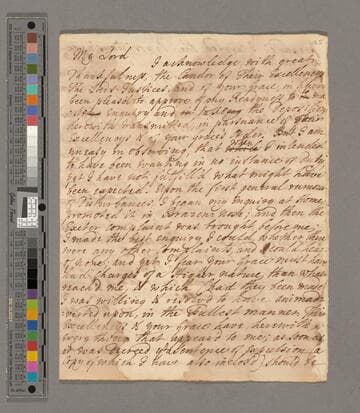 My Lord
I acknowledge with great
Thankfulness, the Candor of Their Excellencys
The Lord Justices, and of your grace, in
been pleased to approve of my Readiness
Enquiry and in taking the Depositions
herewith transmitted, in pursuance of Their
Excellencys & of your graces Order. But I am
uneasy in observing, that when I intended
to have been wanting in no instance of duty
yet I have not fulfill'd what might have
been expected. Upon the first general rumour
of Disturbances, I began my enquiry at home
promoted it in Brazen nose; and then the
Exeter complaint was brought before me.
I made the best enquiry I could whether there
were any other complaints, and could hear
of none, and yet I fear your Grace must have
had charges of a Higher nature, than what
reach'd me, & which, had they been made
I was willing & resolv'd to have animad
verted upon, in the fullest manner. Their
Excellencys & your Grace have, herewith
every thing that appear'd to me; as soon as
it was Decreed a Sentence of expulsion (a
copy of which I have also inclosed) should be